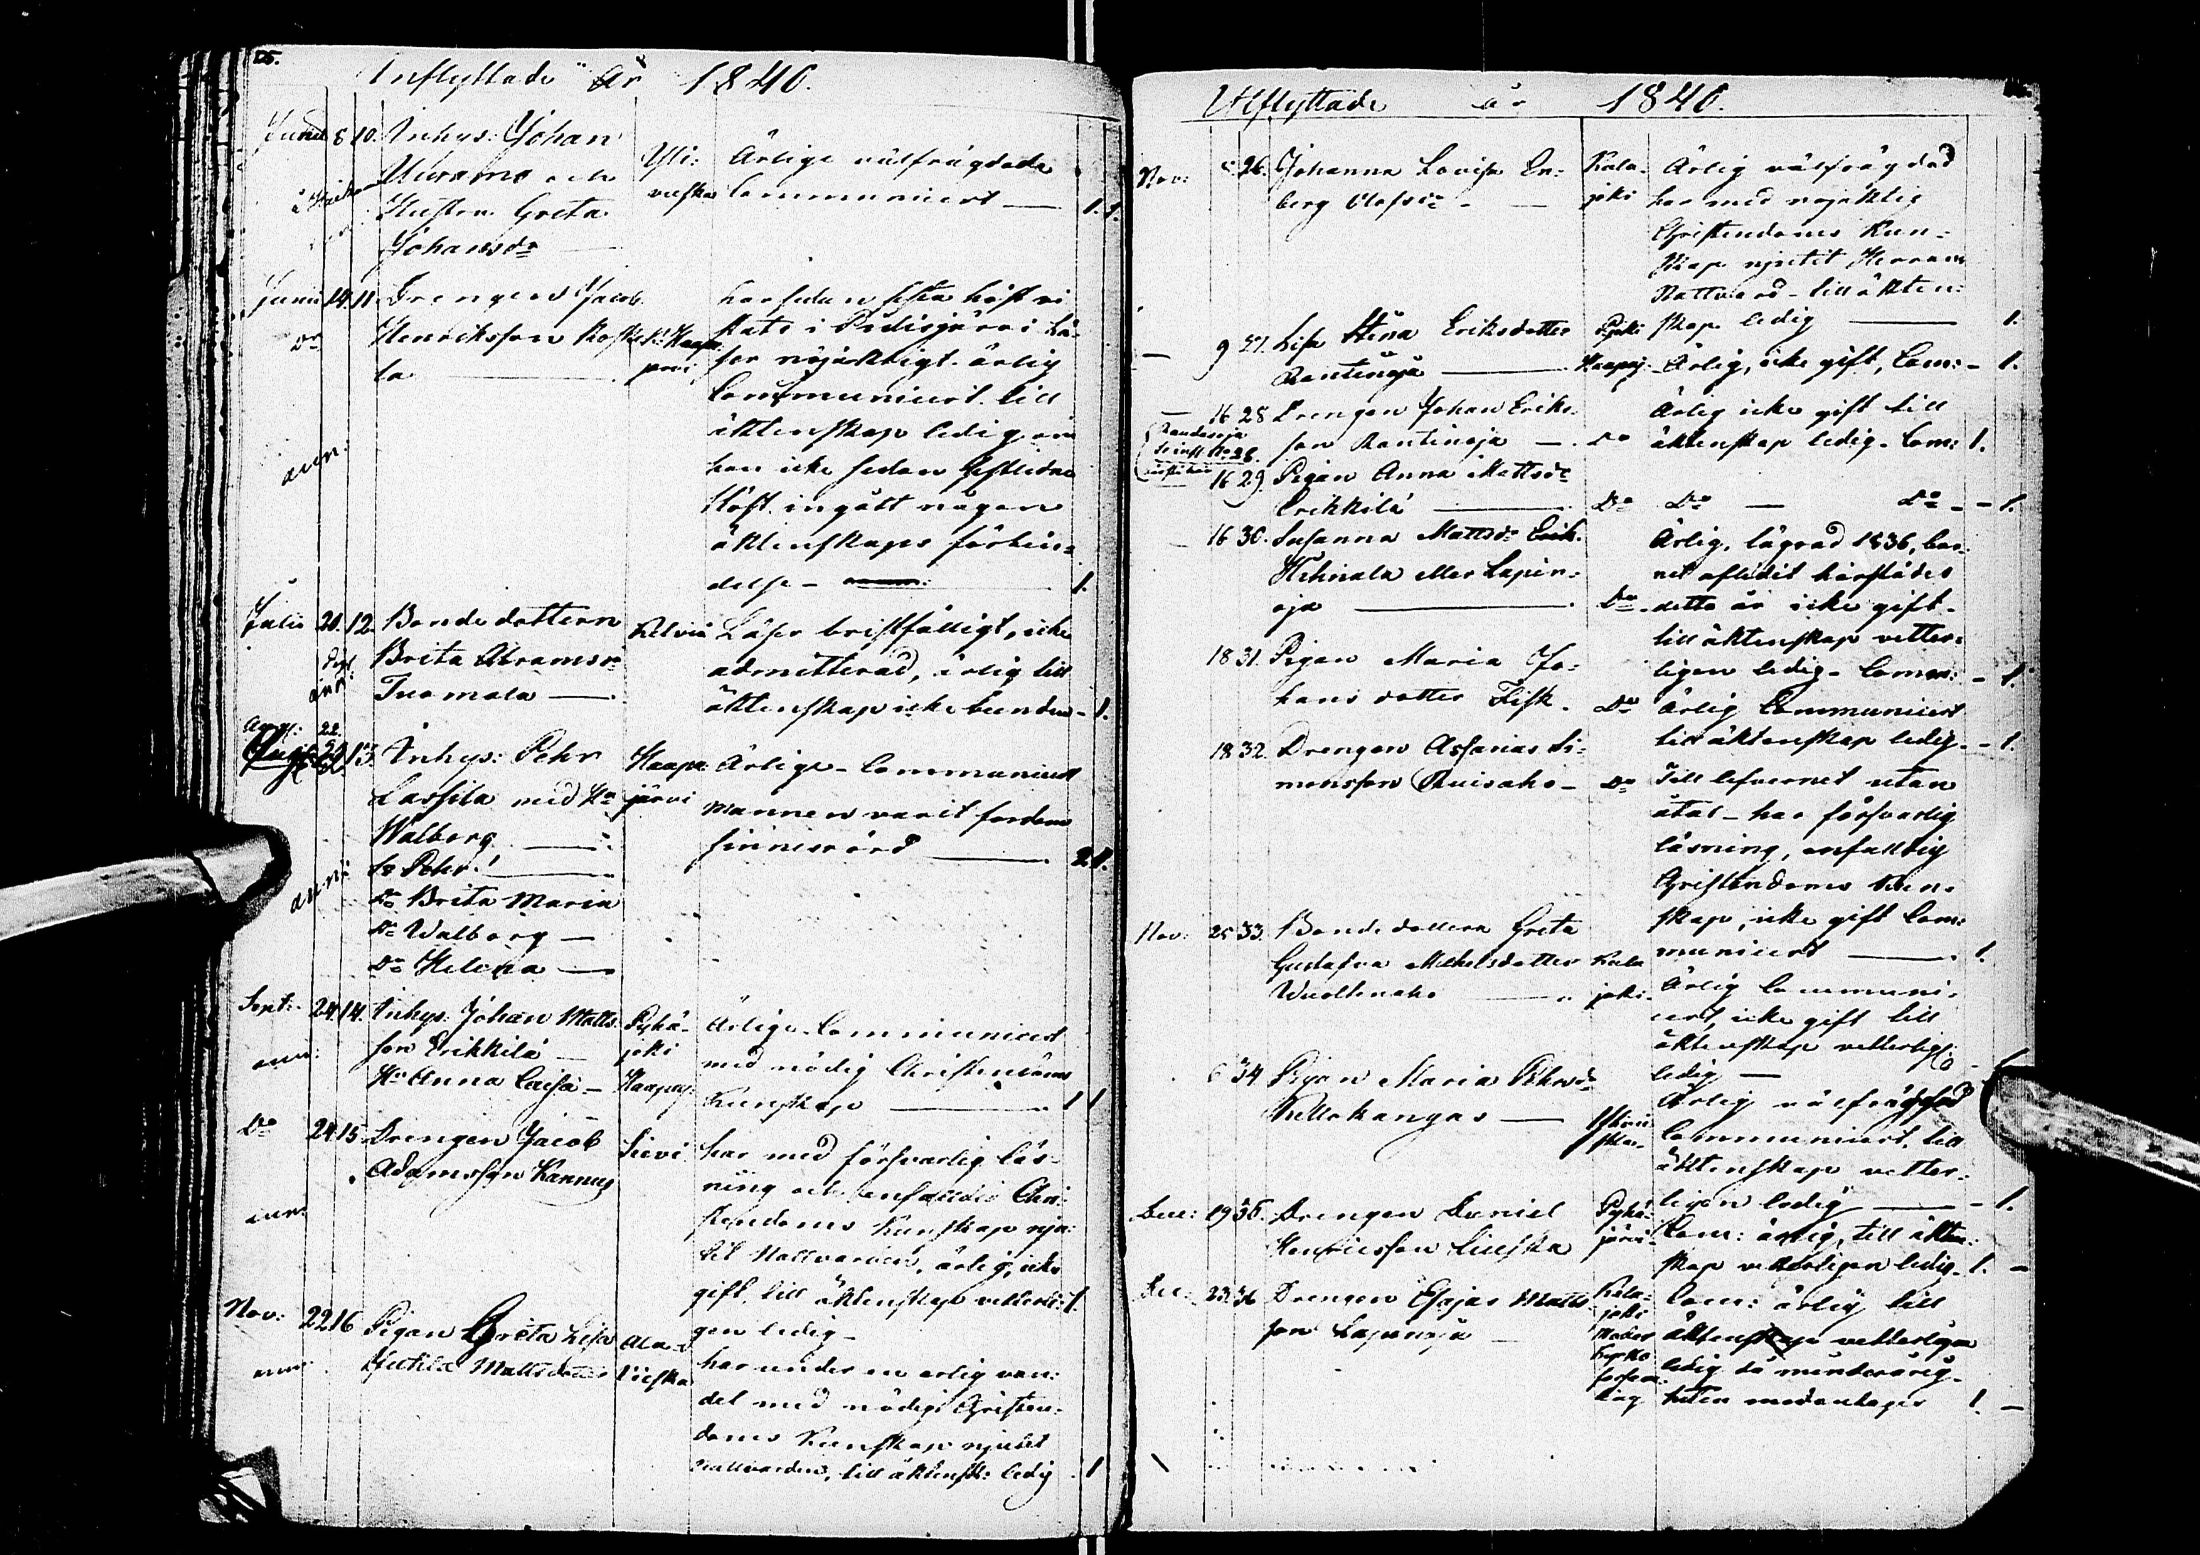 Inflyttade År 1840.
Junii 8 10. Inhys: Johan
och
Hustru Greta
Johansdr
Yli:
vieska
Ärlige välfrägdade
Communicert — 1. 1.
Junii 14. 11. Drengen Jacob
Do Henriksson
la —
Haapa
järvi
har sedan sista höst vi
stats i Pidisjärvi lä-
ser nöjaktigt ärlig
Communicert till
äktenskap ledig om
han icke sedan sistledne
Höst ingått någon
äktenskaps förbin-
delse — 1.
ann:
Julii 20. 12. Bonde dottern
Brita Abramsdr
Tuomala —
Kelviå
Läser bristfälligt, icke
admitterad, ärlig till
äktenskap icke bunden - 1.
Aug: 22.
13. Inhys: Pehr
Lassila med Hu
Walborg —
So Pehr —
Dr Brita Maria
Dr Walborg —
Dr Helena —
Haapa
järvi
Ärlige - Communicert
mannen varit fordom
sinnesrörd — 2. 1.
Sept: 24. 14. Inhys: Johan Matts
son Erikkilä —
Hu Anna Caisa —
Pyhä-
joki
Haapaj:
Ärlige - Communicert
med nödig Christendoms
Kunskap — 1 1
Do 24. 15. Drengen Jacob
Adamsson Kannus
Sievi
har med försvarlig läs-
ning och enfaldig Chri-
stendoms Kunskap nju-
tit Nattvarden, ärlig, icke
gift, till äktenskap vetterli- 1.
gen ledig —
Nov: 22 16 Pigan Greta Lisa
Mattsdotter
Ala-
vieska
har under en ärlig van-
del med nödig Christen-
doms Kunskap njutit
nattvarden, till äktensk: ledig 1
Utflyttade år 1840.
Nov: 5. 26. Johanna Lovisa En-
berg Olofsdr —
Kala-
joki
Ärlig välfrägdad
har med nöjaktig
Christendoms Kun-
skap njutit Herrans
Nattvard - till äkten-
skap ledig — 1.
— 9 27. Lisa Stina Eriksdotter
Rantinoja —
Pyhäj:
Haapaj:
Ärlig, icke gift, Com: - 1.
— 16 28 Drengen Johan Eriks-
son Rantinoja —
Do
Ärlig icke gift till
äktenskap ledig. Com: 1.
16 29. Pigan Anna Mattsdr
Erikkilä —
Do Do — Do - - 1.
16 30. Susanna Mattsdr
eller Lapin-
oja —
Do
Ärlig, lägrad 1836, bar-
net aflidit härstädes
detta år icke gift -
till äktenskap vetter-
ligen ledig - Comm: - 1.
18 31. Pigan Maria Jo-
hans dotter Fisk.
Do
Ärlig Communicert
till äktenskap ledig - - 1.
18 32. Drengen Assarias Si-
monsson Ruisaho —
Do
Till lefvernet utan
åtal - har försvarlig
läsning, enfaldig
Christendoms Kun-
skap, icke gift Com-
municert — 1.
Nov: 25 33. Bonde dottern Greta
Gustafva Michelsdotter
Wuoltenaho —
Kala
joki
Ärlig Communi-
cert, icke gift till
äktenskap vetterlig:
ledig —
6 34 Pigan Maria Pehrsdr
Kellokangas —
Ylivie
ska
Ärlig välfrägdad
Communicert, till
äktenskap vetter-
ligen ledig — - 1.
Dec: 19 35. Drengen Daniel
Henricsson Vieska
Pyhä-
järvi
Com: ärlig, till äkten-
skap vetterligen ledig - 1. —
Dec: 23 36 Drengen Esajas Matts
son Lapinoja —
Kala-
joki
Moder
Kyrko
försam-
ling
Com: ärlig till
äktenskap vetterligen
ledig då minderårig-
heten medentages 1. —